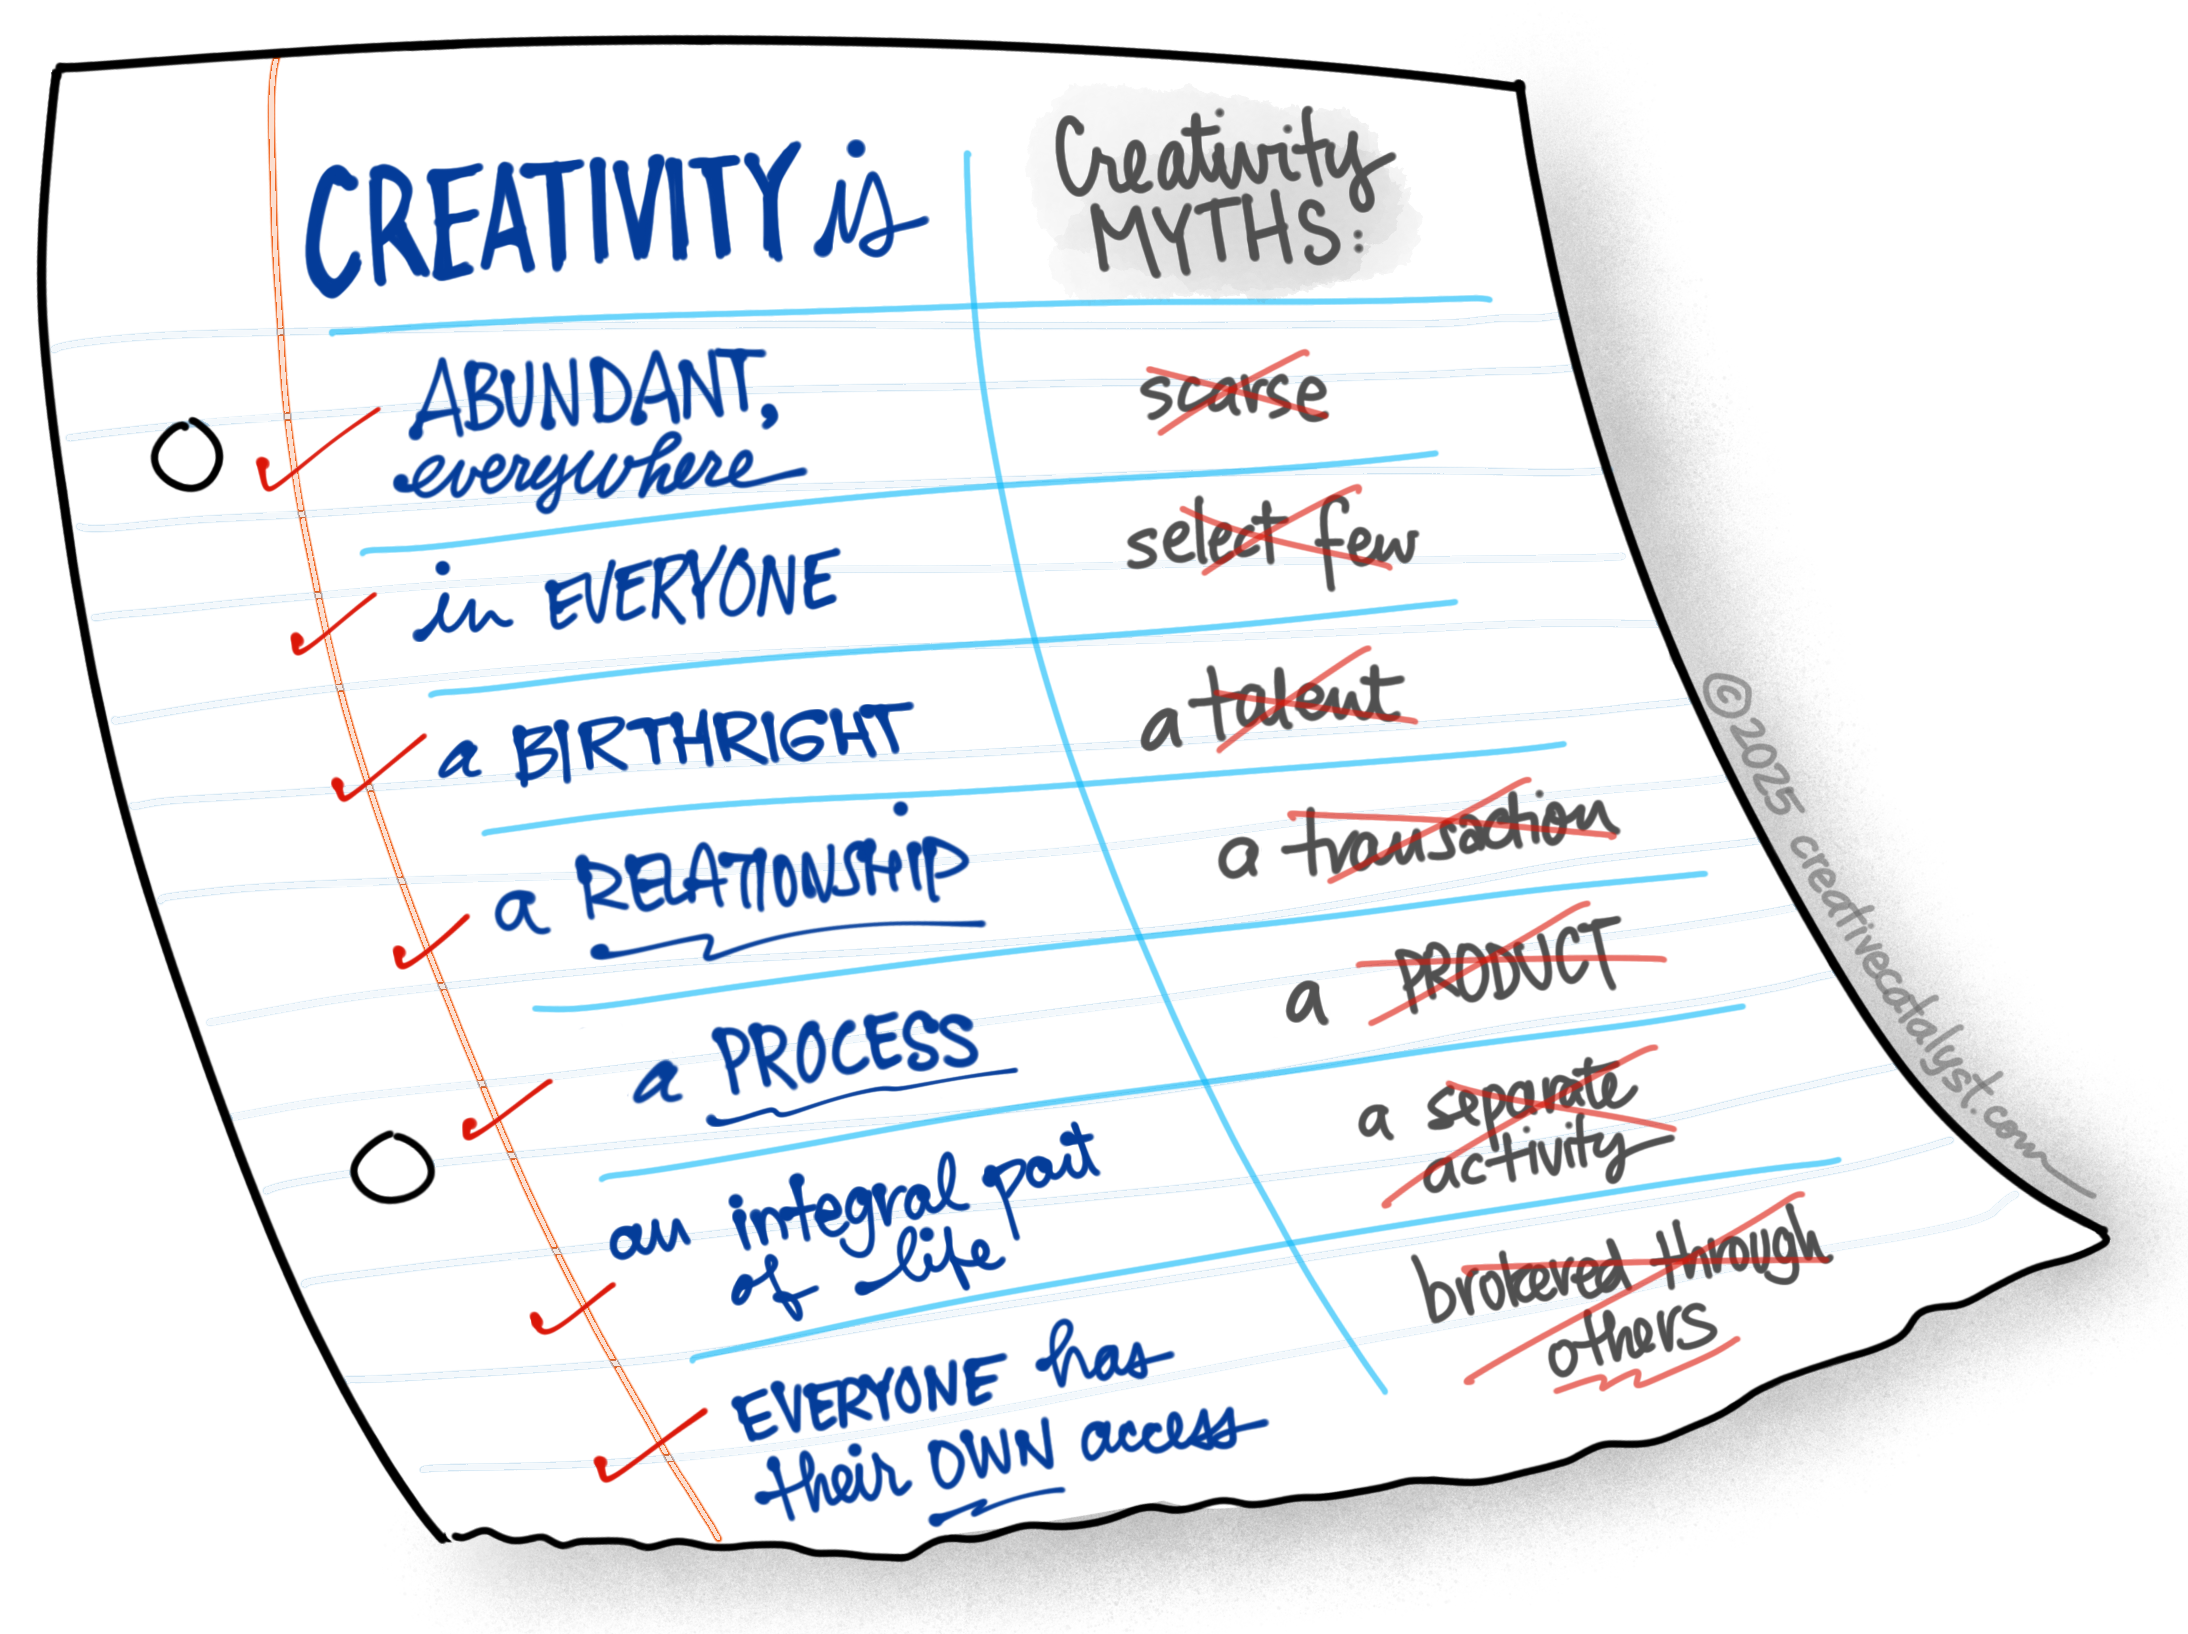 CREATIVITY is
Creativity
MYTHS:
ABUNDANT,
everywhere
scarse
in EVERYONE
select few
a BIRTHRIGHT
a talent
a RELATIONSHIP
a transaction
a PROCESS
a PRODUCT
an integral part
of life
a separate
activity
EVERYONE has
their OWN access
brokered through
others
©2025 creativecatalyst.com